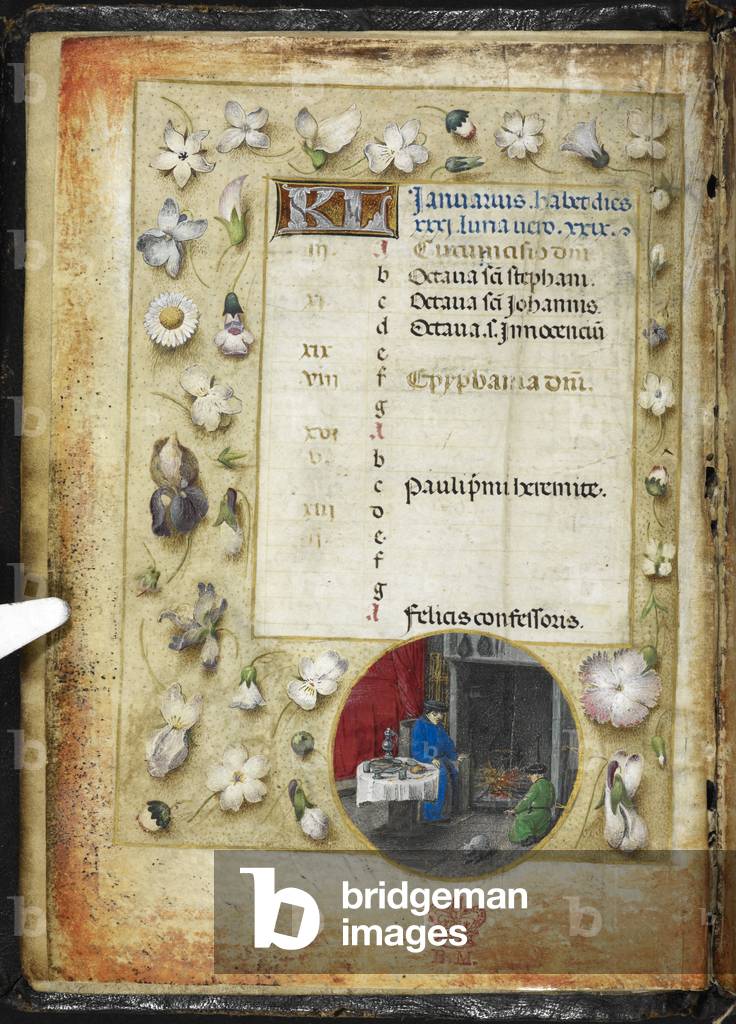 KL Januarius. habet dies
xxxj luna uero. xxix.
iij. A Circumcisio dm
b Octaua sci stephani.
xj c Octaua sci Johannis.
d Octaua. s. Innocenciu
xix e
viij f Epyphania dm.
g
xvi A
v. b
c Pauli pmi heremite.
xiij D
ij. e
f
g
A Felicis confessoris.
b bridgeman
images
B.M.